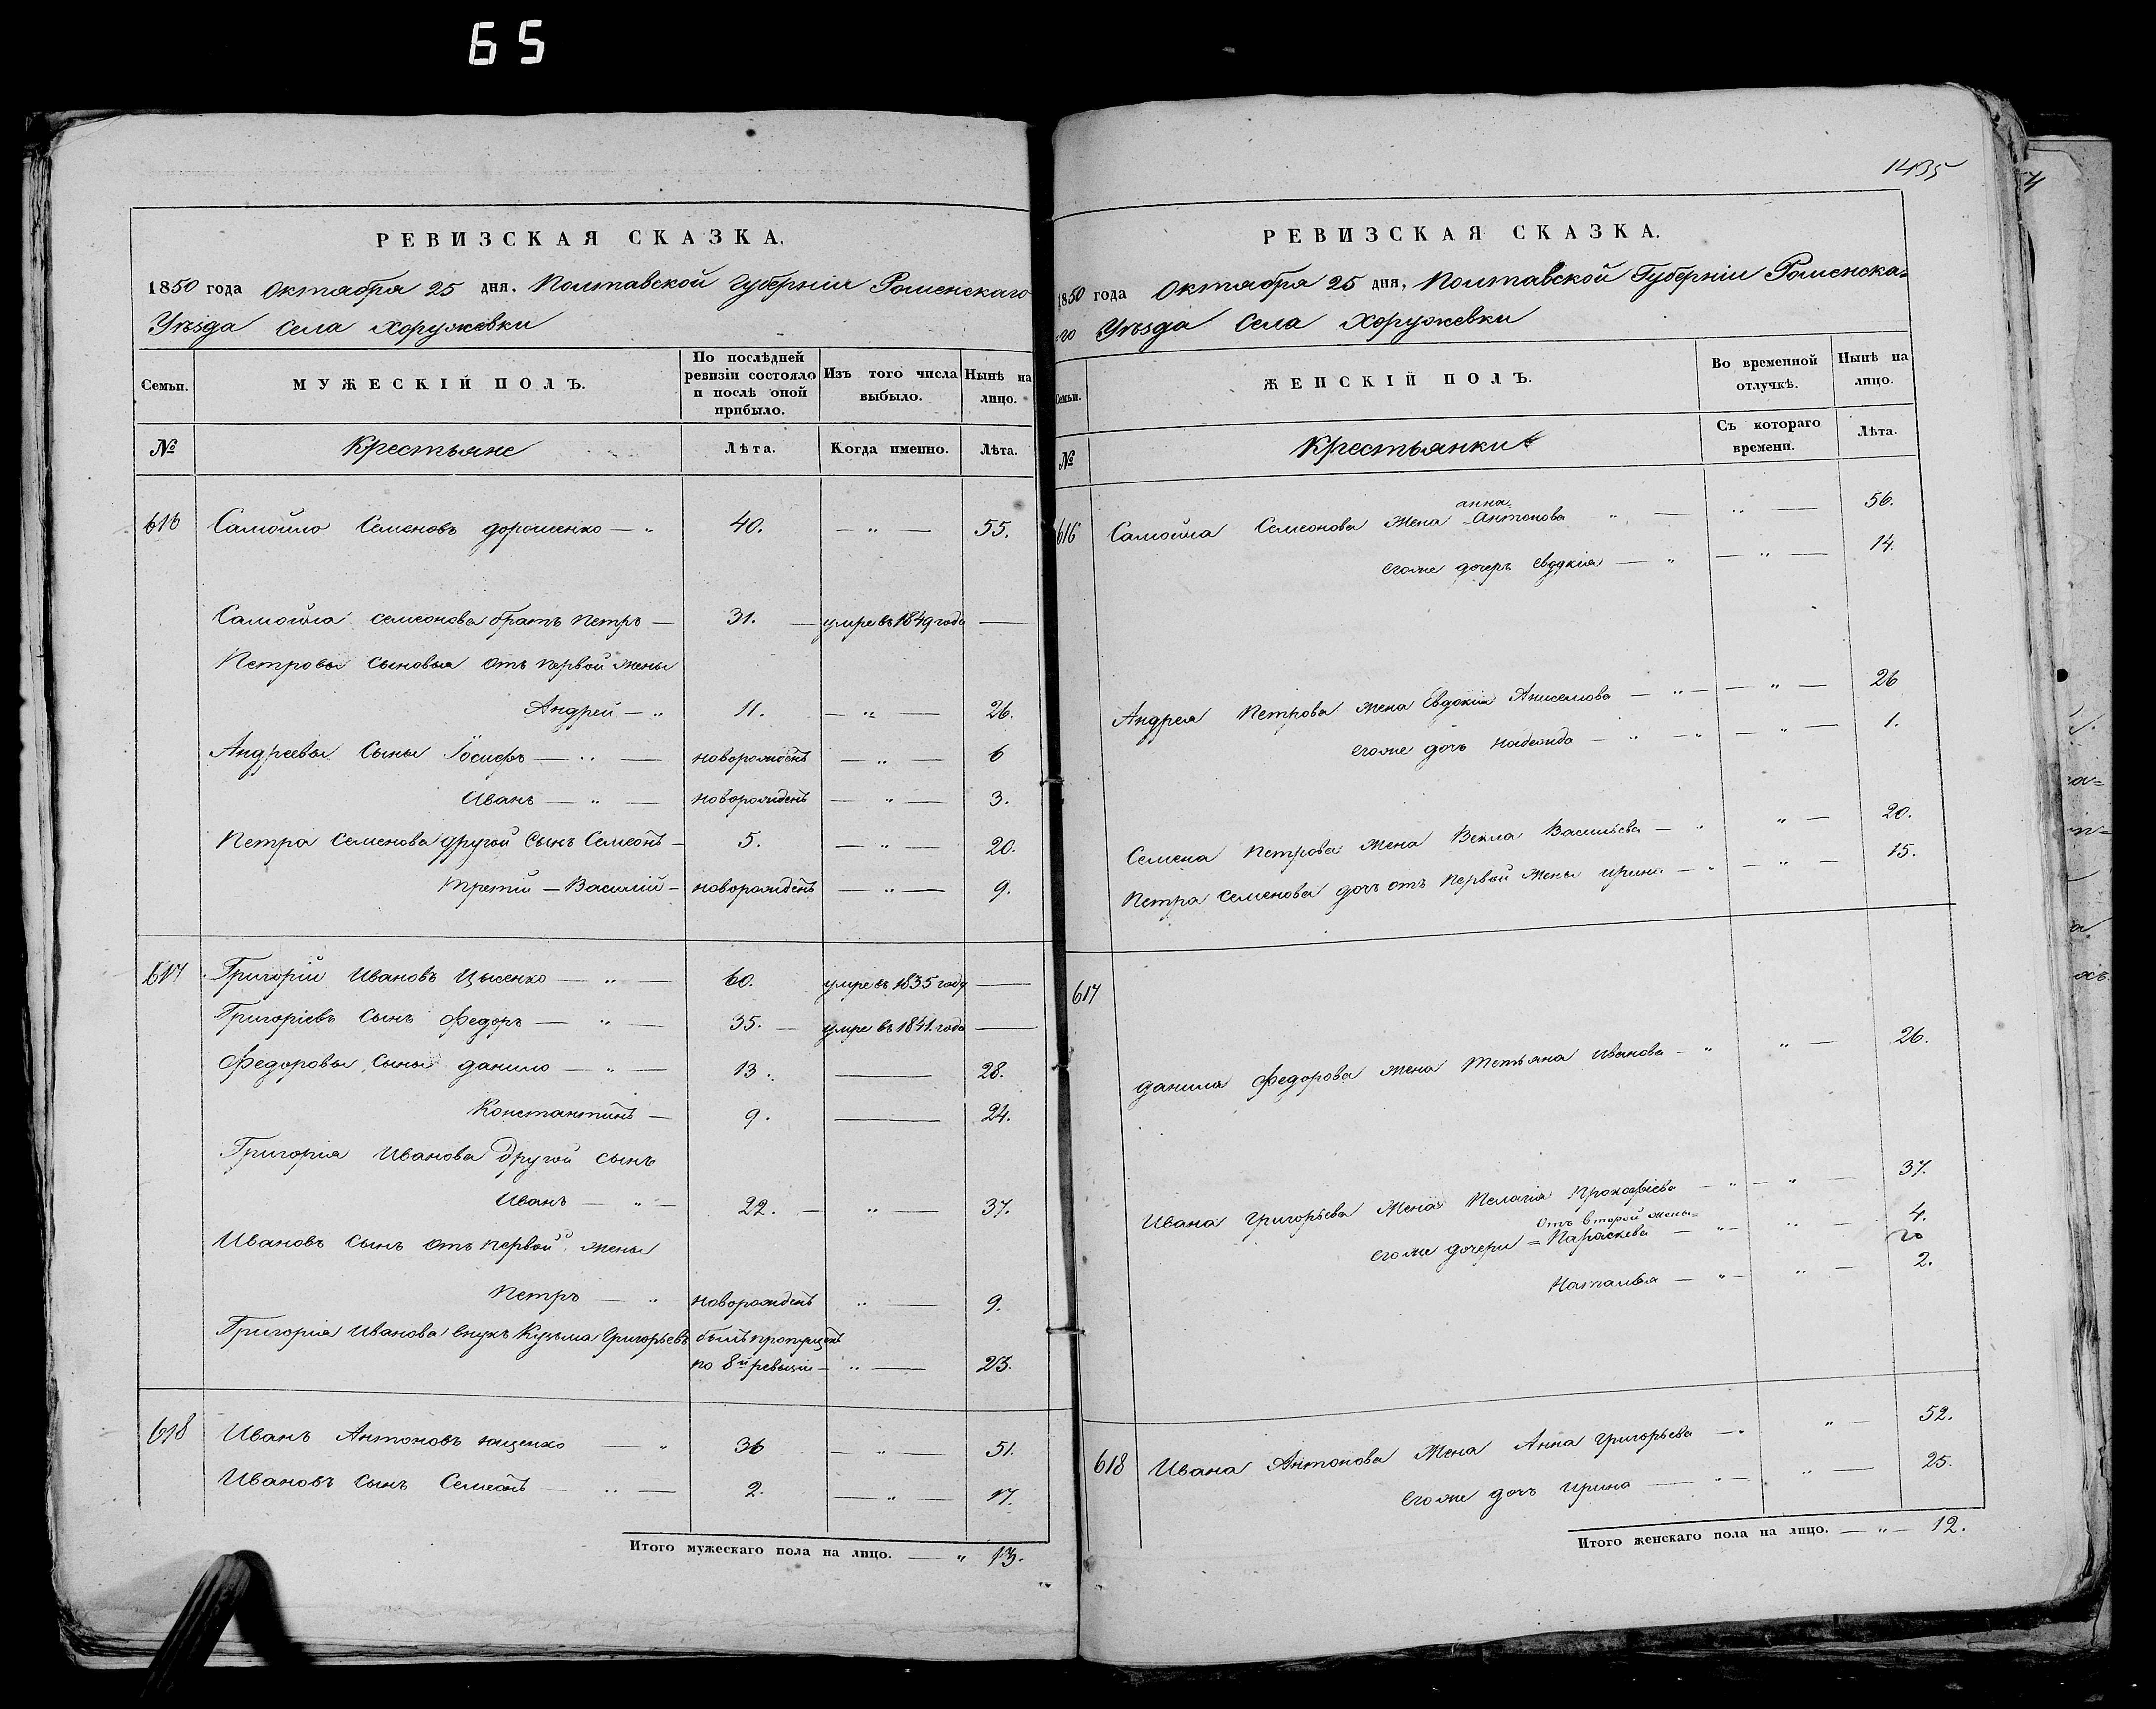 65
РЕВИЗСКАЯ СКАЗКА.
1850 года Октября 25 дня. Полтавской Губерніи Роменскаго
Уѣзда Села Хоружевки
Семьи.
МУЖЕСКІЙ ПОЛЪ.
По послѣдней ревизіи состояло и послѣ оной прибыло.
Изъ того числа выбыло.
Нынѣ на лицо.
№
Крестьяне
Лѣта.
Когда именно.
Лѣта.
616 Самойло Семеновъ дорошенко — „ 40. — „ — 55.
Самойла семеонова братъ Петръ — 31. — умре въ 1849 года —
Петровы сыновья отъ первой жены
Андрей — „ 11. — „ — 26.
Андреевы Сыны Іосифъ — „ — новорожденъ — „ — 6
Иванъ — „ — новорожденъ — „ — 3.
Петра Семенова другой Сынъ Семеонъ — 5. — „ — 20.
третій — Василій — новорожденъ — „ — 9.
617 Григорій Ивановъ Цысенко — „ — 60. умре въ 1835 году —
Григоріевъ Сынъ Федоръ — „ — 35. — умре въ 1841. года —
Федоровы Сыны данило — „ — 13. — 28.
Константинъ — 9. — 24.
Григорія Иванова Другой сынъ
Иванъ — „ — 22. — „ — 37.
Ивановъ Сынъ отъ первой жены
Петръ — „ новорожденъ „ — 9.
Григорія Иванова внукъ Кузьма Григорьевъ былъ пропущенъ
по 8й ревизіи — „ — 23.
618 Иванъ Антоновъ ющенко — „ 36 — „ — 51.
Ивановъ Сынъ Семеонъ — „ — 2. — „ — 17.
Итого мужескаго пола на лицо. — „ 13.
1435
РЕВИЗСКАЯ СКАЗКА.
1850 года Октября 25 дня, Полтавской Губерніи Роменска=
го Уѣзда Села Хоружевки
Семьи.
ЖЕНСКІЙ ПОЛЪ.
Во временной отлучкѣ.
Нынѣ на лицо.
№
Крестьянки
Съ котораго времени.
Лѣта.
анна
616 Самойла Семеонова Жена Антонова „ — „ — 56.
егоже дочеръ Евдокія — „ — „ — 14.
Андрея Петрова жена Евдокія Анисемова — „ — — „ — 26
егоже дочъ надежда — „ — „ — „ — 1.
Семена Петрова Жена Векла Васильева — „ „ — 20.
Петра Семенова дочъ отъ первой жены ирина — „ — „ — 15.
617
данила Федорова жена Тетьяна Иванова — „ „ — 26.
Ивана Григорьева Жена Пелагія Прокофіева — „ — „ — 37.
отъ второй жены=
егоже дочери = Параскева — „ — „ — 4.
Наталья — „ — „ — 2.
618 Ивана Антонова Жена Анна Григорьева — „ „ — 52.
егоже дочъ ирина — „ — „ — 25.
Итого женскаго пола на лицо. — „ — 12.